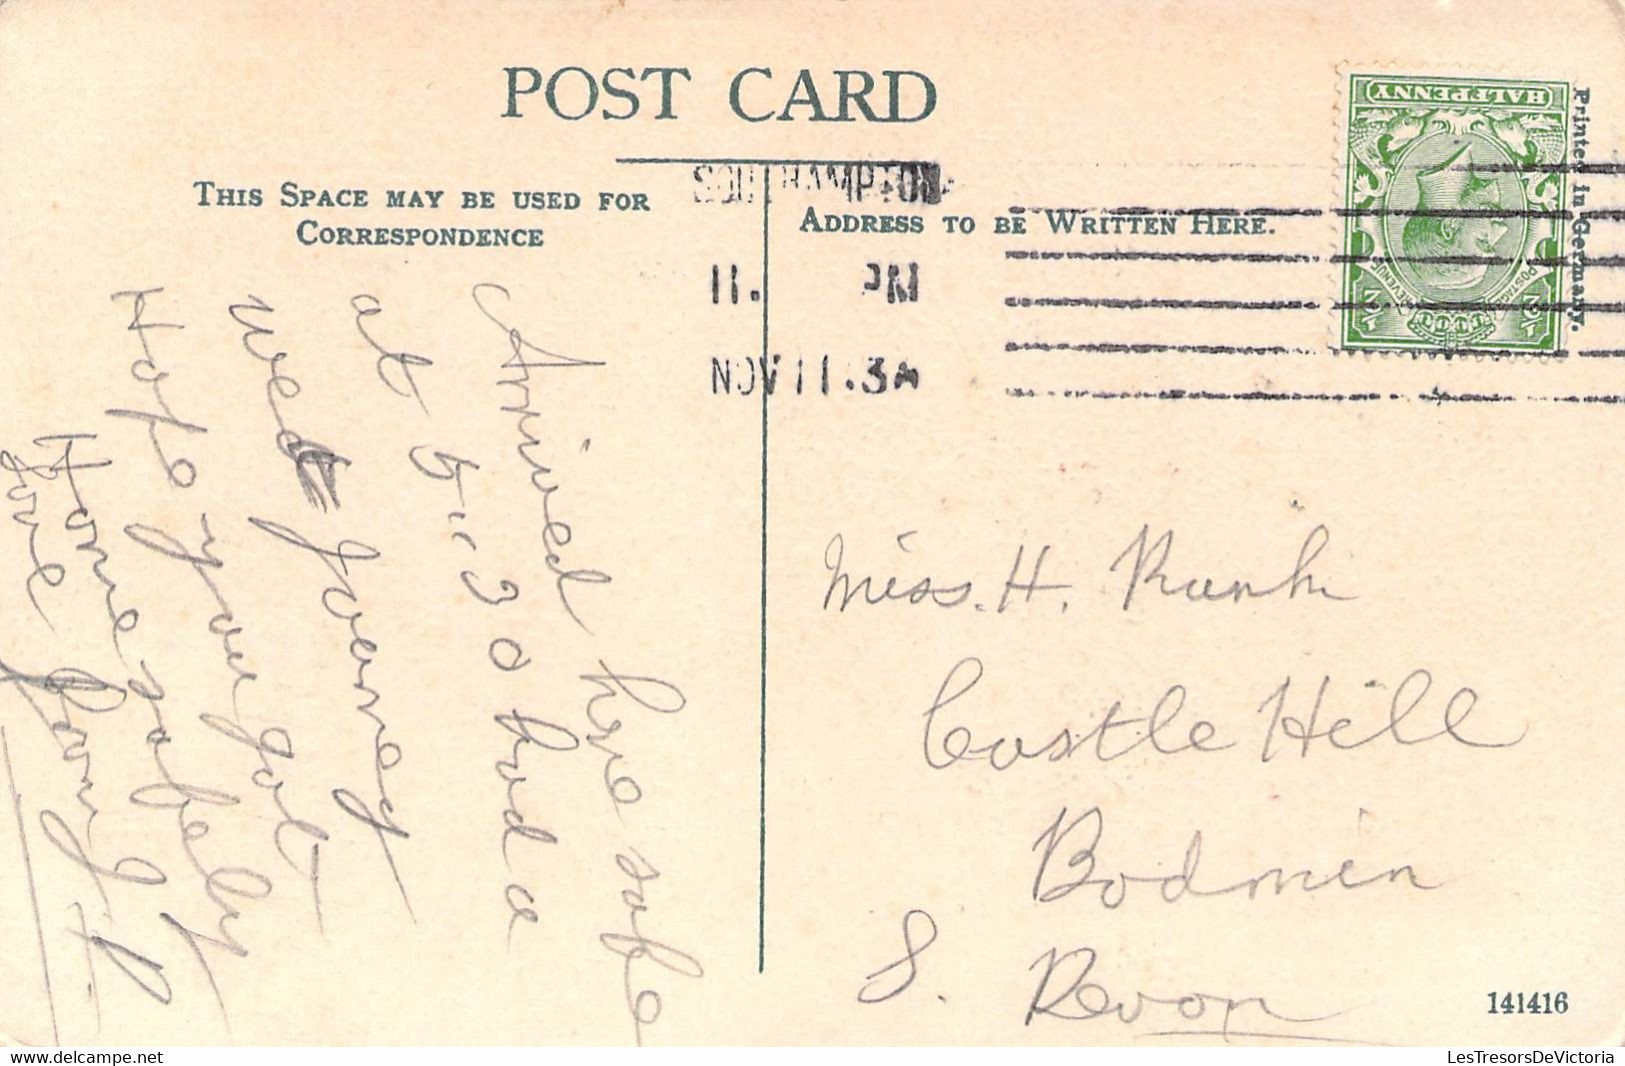 POST CARD
THIS SPACE MAY BE USED FOR
CORRESPONDENCE
ADDRESS TO BE WRITTEN HERE.
SOUTHAMPTON
11. PM
NOV 11.13A
HALFPENNY
POSTAGE REVENUE
½ ½
Printed in Germany.
Arrived here safe
at 5.30 had a
wet Joarney
Hope you got
Home safely
Love
Miss. H.
Castle Hill
Bodmin
S. Devon
141416
LesTresorsDeVictoria